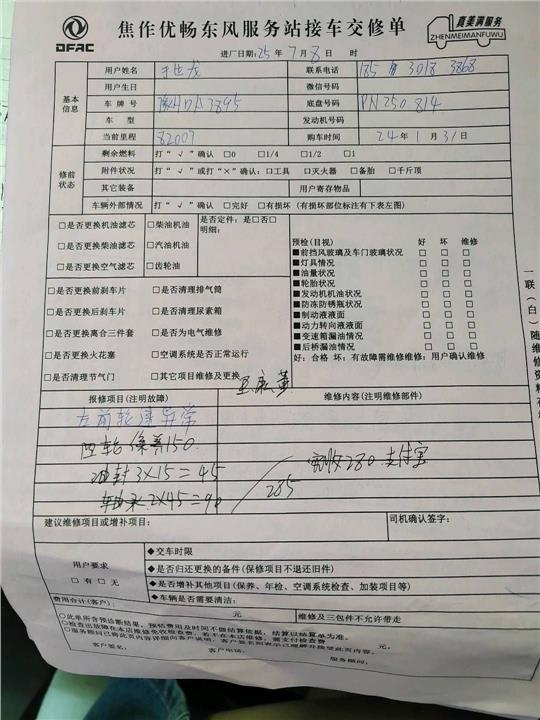 DFAC
焦作优畅东风服务站接车交修单
真美满服务
ZHENMEIMANFUWU
进厂日期:25年7月8日 时
基本信息
用户姓名 联系电话 185 3018 3868
用户生日 微信号码
车牌号 底盘号码 PN250814
车型 发动机号码
当前里程 82007 购车时间 24年1月31日
修前状态
剩余燃料 打“√”确认 □0 □1/4 □1/2 □1
附件状况 打“√”或打“×”确认:□工具 □灭火器 □备胎 □千斤顶
其它装备 用户寄存物品
车辆外部情况 打“√”确认 □完好 □有损坏(有损坏部位标注有下表左图)
□是否更换机油滤芯 □柴油机油 是否定件:是□否□
□是否更换柴油滤芯 □汽油机油 明细:
□是否更换空气滤芯 □齿轮油
□是否更换前刹车片 □是否清理排气筒
□是否更换后刹车片 □是否清理尿素箱
□是否更换离合三件套 □是否为电气维修
□是否更换火花塞 □空调系统是否正常运行
□是否清理节气门 □其它项目维修及更换
预检(目视) 好 坏 维修
■前挡风玻璃及车门玻璃状况 □ □ □
■灯具情况 □ □ □
■油量状况 □ □ □
■轮胎状况 □ □ □
■发动机机油状况 □ □ □
■防冻防锈瓶状况 □ □ □
■制动液液面 □ □ □
■动力转向液液面 □ □ □
■变速箱漏油情况 □ □ □
■后桥漏油情况 □ □ □
好:合格 坏:有故障需维修维修:用户确认维修
报修项目(注明故障) 维修内容(注明维修部件)
左前轮速异常
四轮保养150
油封3×15=45
轴承2×45=90
285
实收280 支付宝
建议维修项目或增补项目: 司机确认签字:
用户要求
□有□无
◆交车时限
◆是否归还更换的备件(保修项目不退还旧件)
◆是否增补其他项目(保养、年检、空调系统检查、加装项目等)
◆车辆是否需要清洁:
费用合计(客户): 元 维修及三包件不允许带走
○此单所含预诊断结果,预估费用及时间不做结算依据,结算以结算单为准。
○检查出故障在本店维修免收检查费,若不在本店维修,需支付检查费 元。
客户签名: 客户电话: 服务顾问:
一联(白)随维修资料存